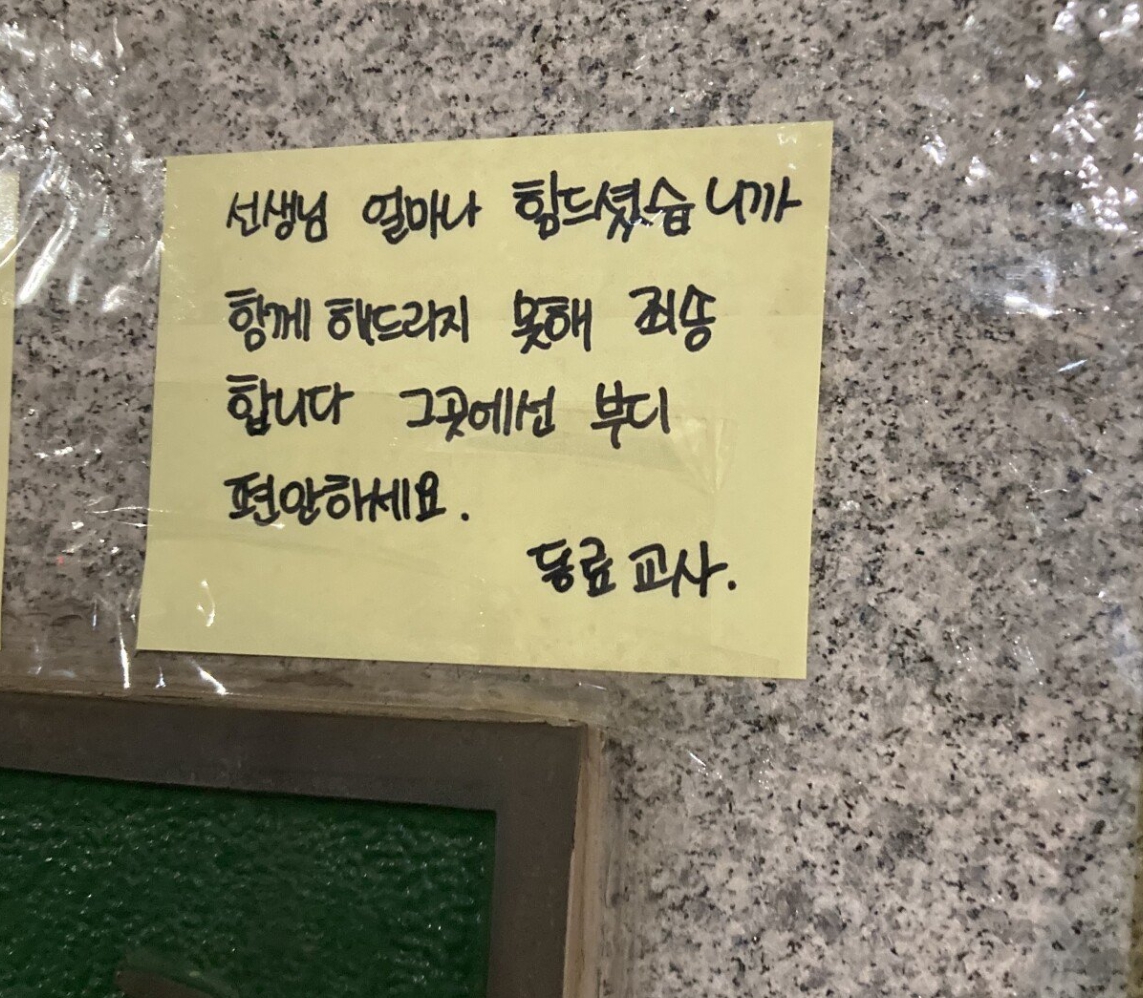 선생님 얼마나 힘드셨습니까
함께 해드리지 못해 죄송
합니다 그곳에선 부디
편안하세요.
동료 교사.